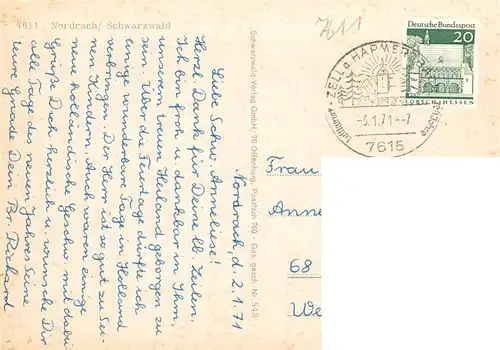 7611 Nordrach/Schwarzwald
7611
Nordrach, d. 2.1.71
Liebe Schw. Anneliese!
Herzl. Dank für Deine lb. Zeilen.
Ich bin froh u. dankbar in Ihm,
unserem treuen Heiland geborgen zu
sein. Über die Feiertage durfte ich
einige wunderbare Tage in Holland
verbringen. Der Herr ist so gut zu Sei-
nen Kindern. Auch waren einige
neue holländische Geschw. mit dabei
Grüße Dich herzlich u. wünsche Dir
alle Tage des neuen Jahres Seine
teure Gnade Dein Br. Richard
Schwarzwald-Verlag GmbH, 76 Offenburg, Postfach 780 - Ges. gesch. Nr. 548
Deutsche Bundespost
20
LORSCH/HESSEN
ZELL a HARMERSBACH
-5.1.71--7
7615
Frau
Anne
68
We